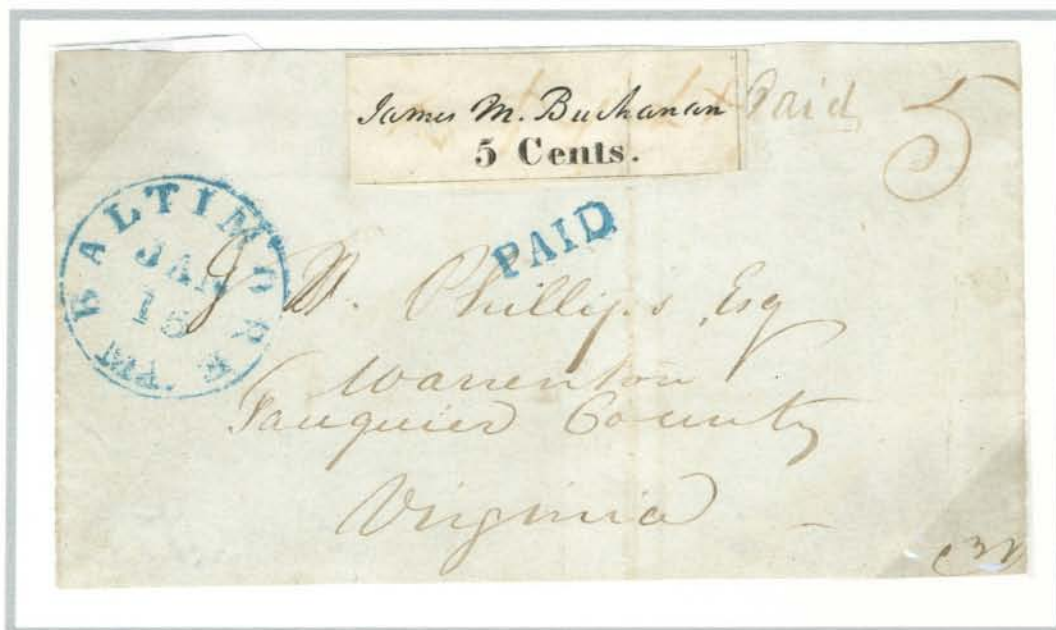 James M. Buchanan
5 Cents.
Paid
5
BALTIMORE Md.
JAN
15
PAID
J W. Phillips, Esq
Warrenton
Fauquier County
Virginia